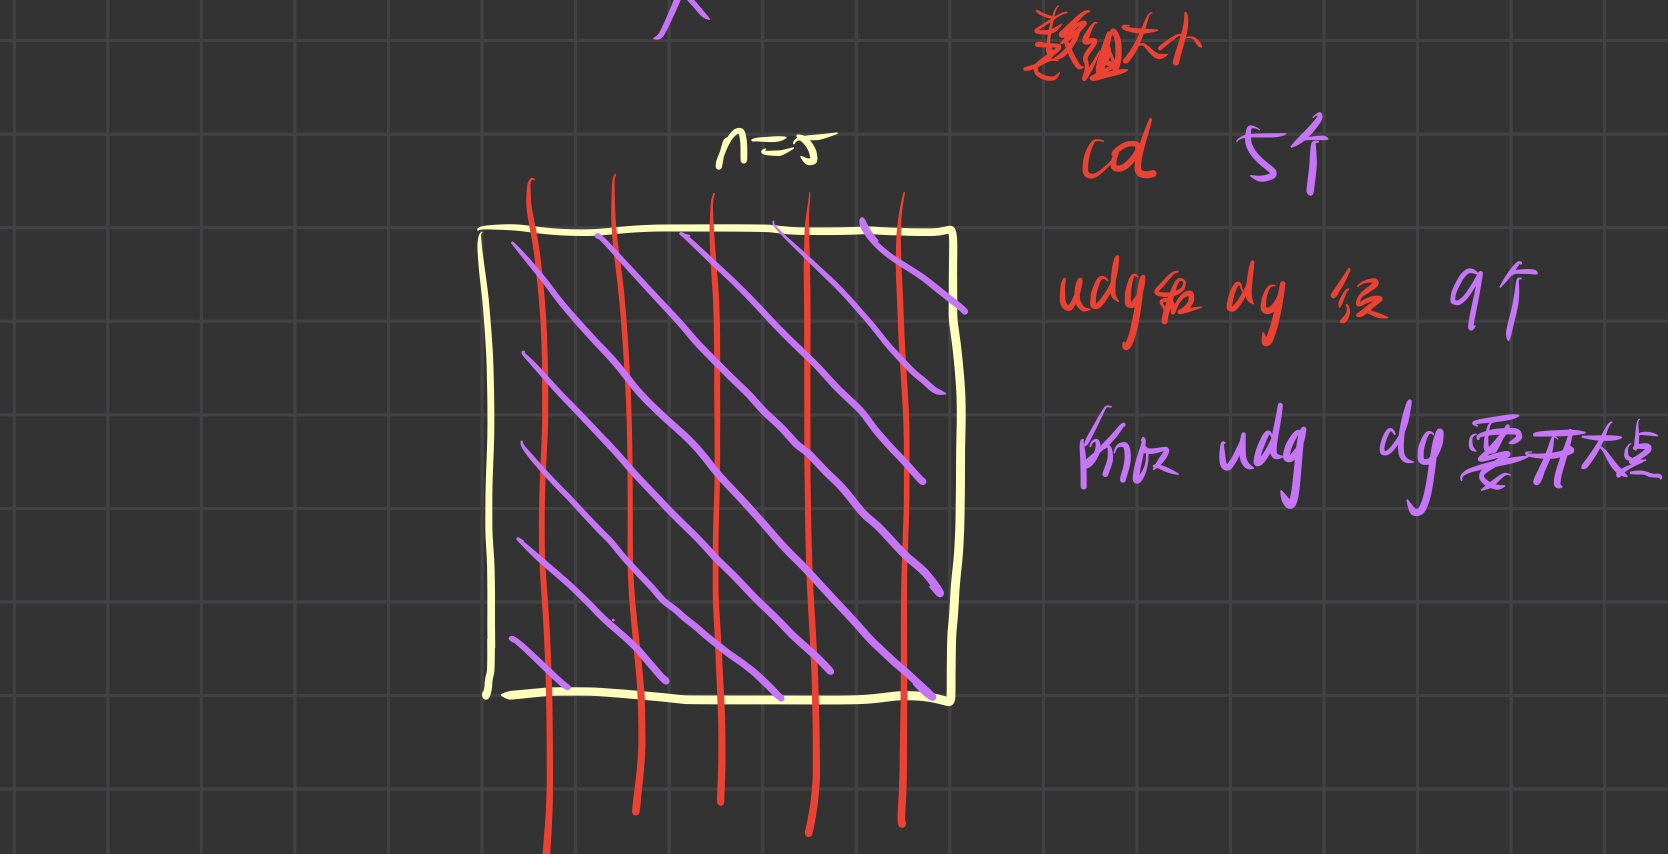 数组大小
n=5
cd 5个
udg和 dg 须 9个
所以 udg dg 要开大点